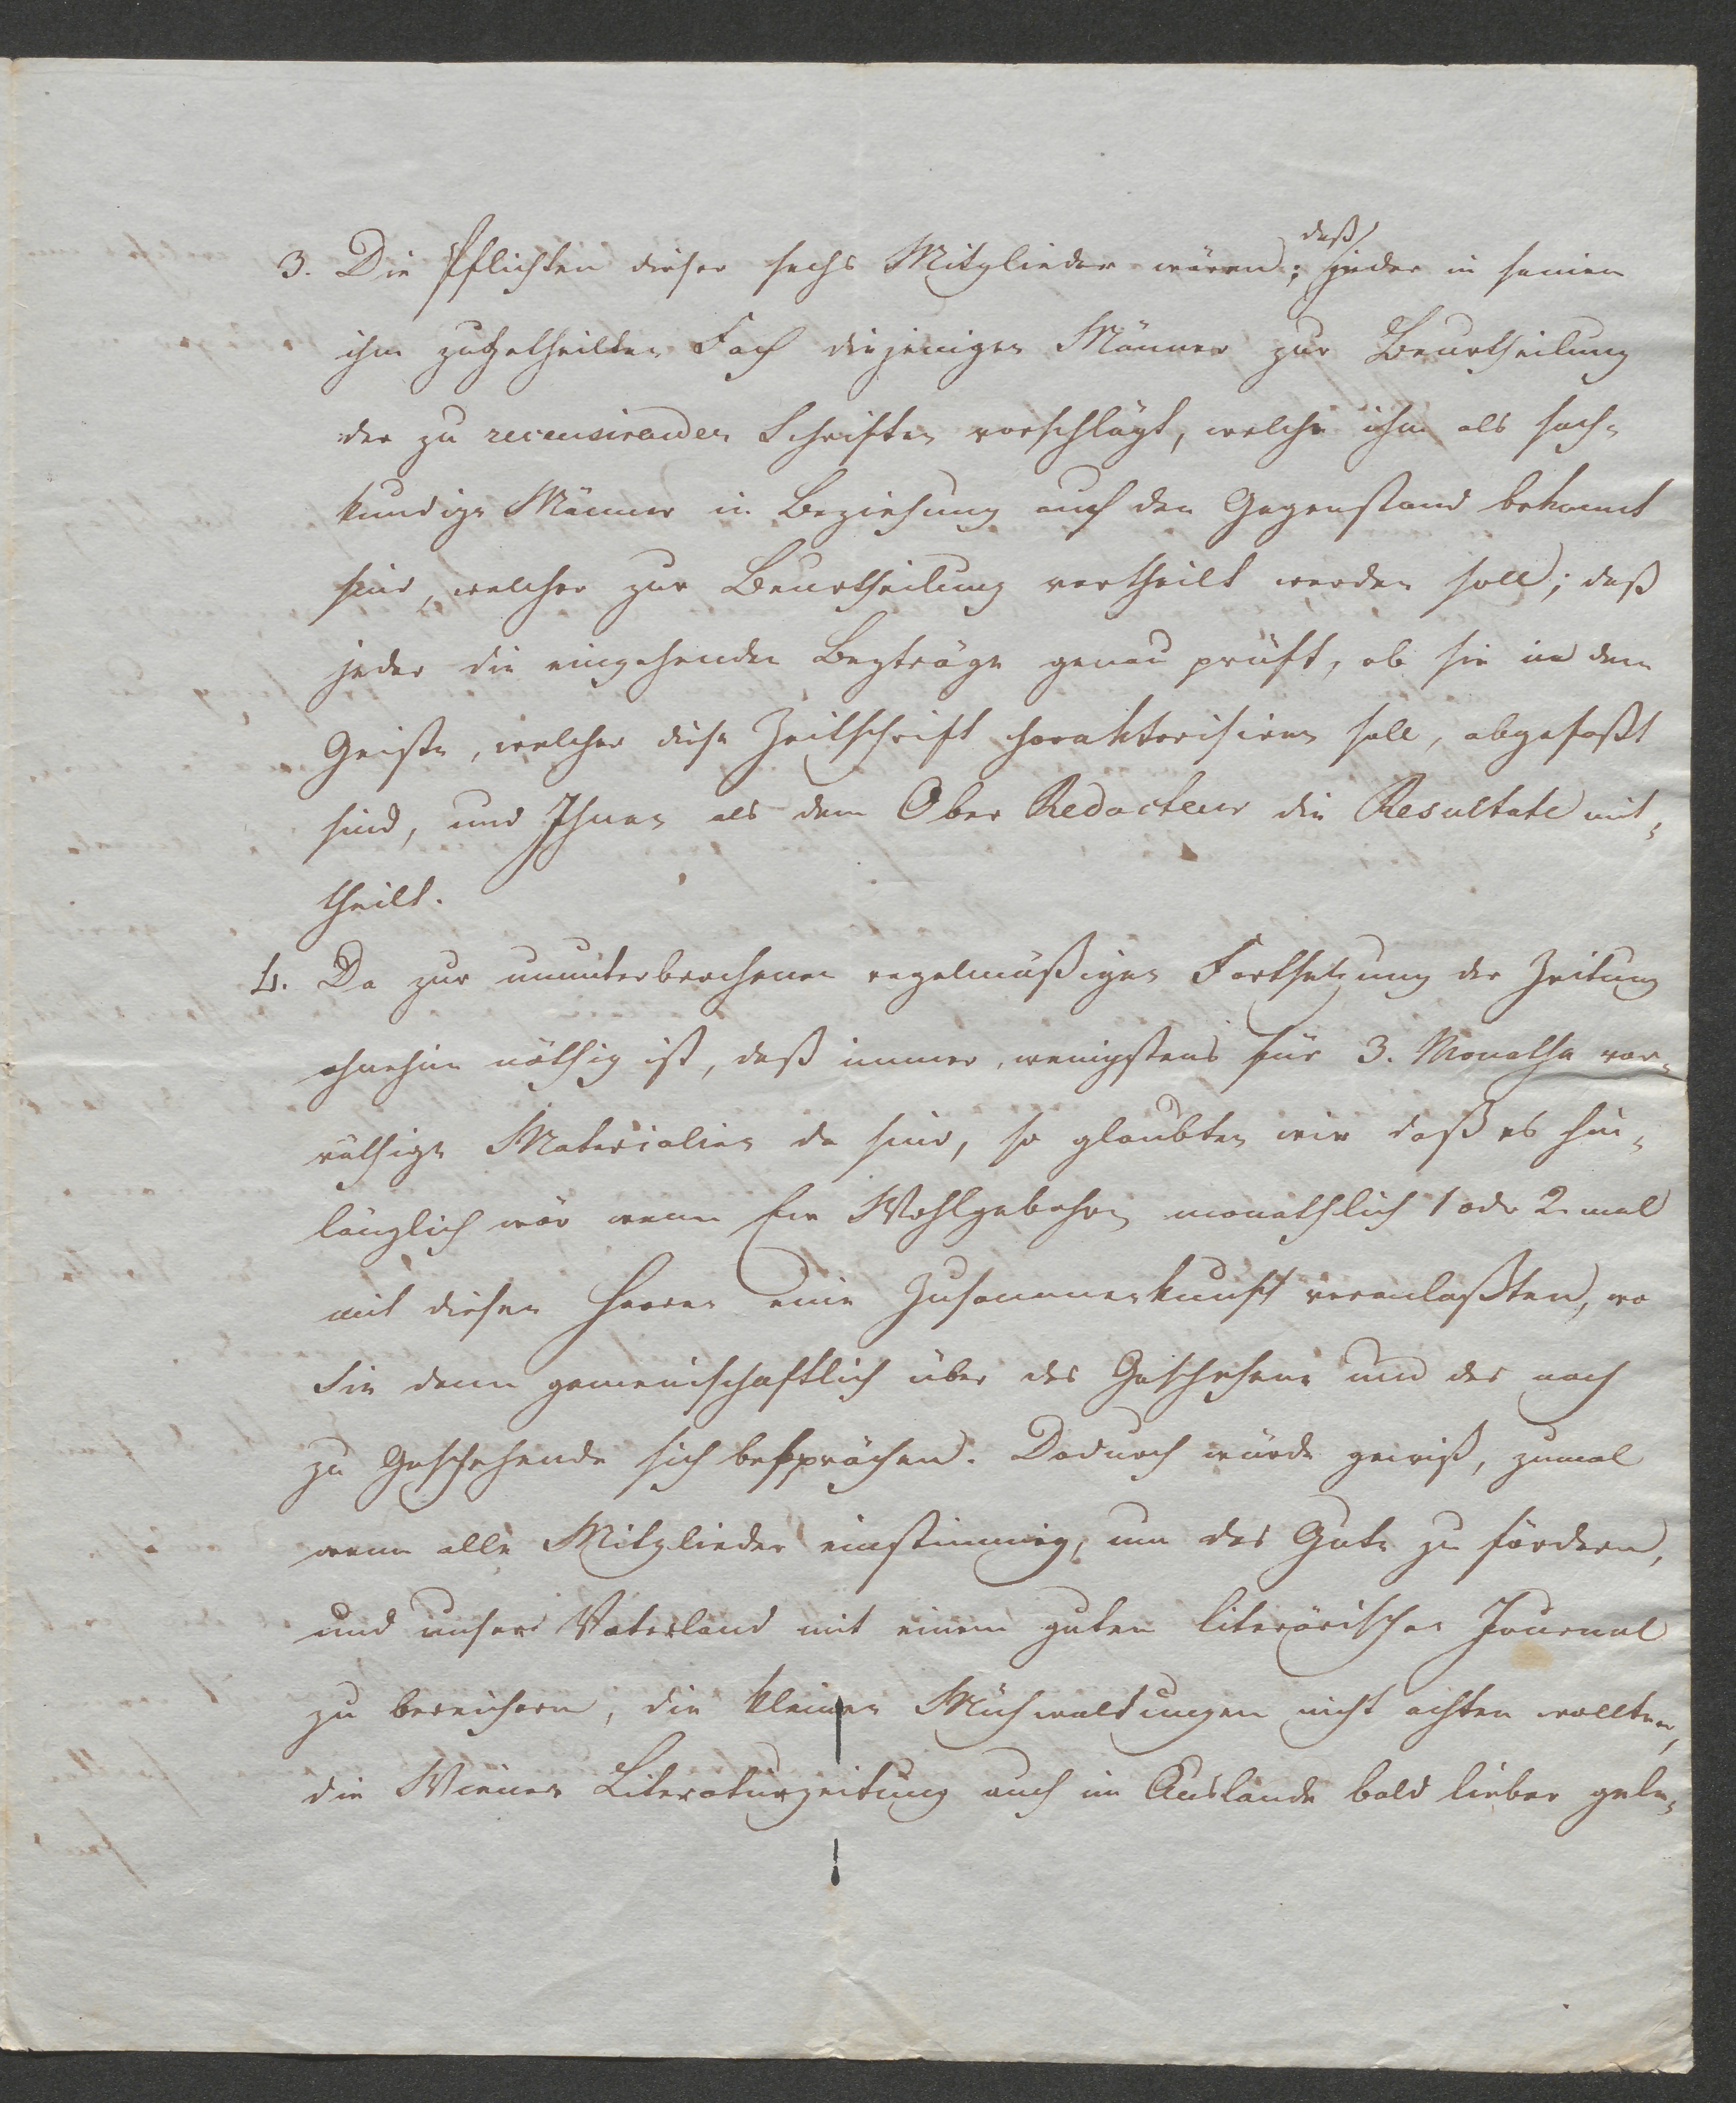 3. Die Pflichten dieser sechs Mitglieder wären; daß jeder in seinem
ihm zugetheilten Fach diejenigen Männer zur Beurtheilung
der zu recensirenden Schriften vorschlägt, welche ihm als sach-
kundige Männer in Beziehung auf den Gegenstand bekannt
sind, welcher zur Beurtheilung vertheilt werden soll; daß
jeder die eingehenden Beyträge genau prüft, ob sie in dem
Geiste, welcher diese Zeitschrift charakterisiren soll, abgefaßt
sind, und Ihnen als dem Ober Redacteur die Resultate mit-
theilt.
4. Da zur ununterbrochenen regelmäßigen Fortsetzung der Zeitung
ohnehin nöthig ist, daß immer wenigstens für 3. Monathe vor-
räthige Materialien da sind, so glaubten wir daß es hin-
länglich wär wenn Eur Wohlgebohrn monathlich 1 oder 2 mal
mit diesen Herren eine Zusammenkunft veranlaßten, wo
Sie dann gemeinschaftlich über das Geschehene und das noch
zu Geschehende sich besprächen. Dadurch würde gewiß, zumal
wenn alle Mitglieder einstimmig, um das Gute zu fördern,
und unser Vaterland mit einem guten literärischen Journal
zu bereichern, die kleinen Mühwaltungen nicht achten wollten,
die Wiener Literaturzeitung auch im Auslande bald lieber gele-